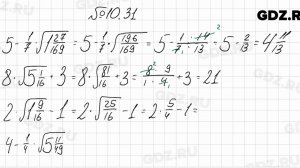 №10.31
GDZ.RU
5 - 1/7 · √(1 27/169) = 5 - 1/7 · √(196/169) = 5 - 1/7 · 14/13 = 5 - 2/13 = 4 11/13
8 · √(5 1/16) + 3 = 8 · √(81/16) + 3 = 8/1 · 9/4 + 3 = 21
2 · √(1 9/16) - 1 = 2 · √(25/16) - 1 = 2 · 5/4 - 1 =
4 - 1/4 · √(5 11/49)
GDZ.RU